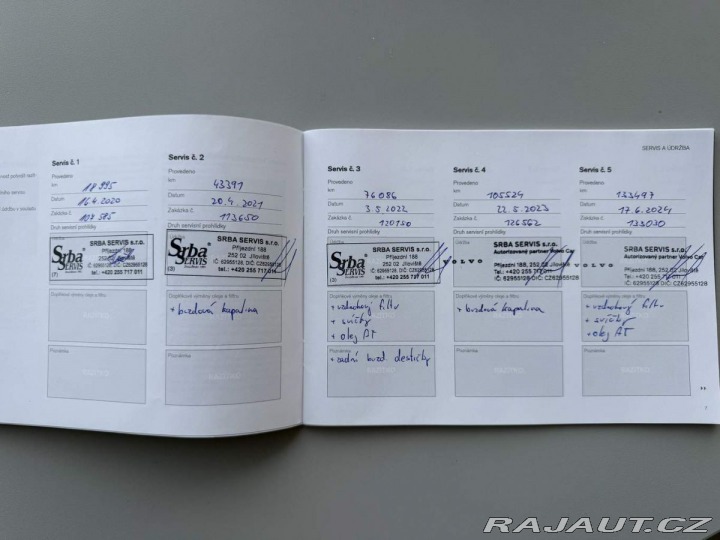 Servis č. 1
Provedeno
km
18 995
Datum
16.4.2020
Zakázka č.
107 585
Druh servisní prohlídky
Údržba
Srba
SERVIS
(7)
SRBA SERVIS s.r.o.
Příjezdní 188
252 02 Jíloviště
IČ: 62955128, DIČ: CZ62955128
tel.: +420 255 717 011
Doplňkové výměny oleje a filtru
RAZÍTKO
Poznámka
RAZÍTKO
Servis č. 2
Provedeno
km
43391
Datum
20.4.2021
Zakázka č.
113650
Druh servisní prohlídky
Údržba
Srba
SERVIS
(3)
SRBA SERVIS s.r.o.
Příjezdní 188
252 02 Jíloviště
IČ: 62955128, DIČ: CZ62955128
tel.: +420 255 717 011
Doplňkové výměny oleje a filtru
+ brzdová kapalina
Poznámka
RAZÍTKO
SERVIS A ÚDRŽBA
Servis č. 3
Provedeno
km
76086
Datum
3.5.2022
Zakázka č.
120150
Druh servisní prohlídky
Údržba
Srba
SERVIS
(3)
SRBA SERVIS s.r.o.
Příjezdní 188
252 02 Jíloviště
IČ: 62955128, DIČ: CZ62955128
tel.: +420 255 717 011
Doplňkové výměny oleje a filtru
+ vzduchový filtr
+ svíčky
+ olej AT
Poznámka
+ zadní brzd. destičky
RAZÍTKO
Servis č. 4
Provedeno
km
105524
Datum
22.5.2023
Zakázka č.
126562
Druh servisní prohlídky
Údržba
VOLVO
SRBA SERVIS s.r.o.
Autorizovaný partner Volvo Car
Příjezdní 188, 252 02 Jíloviště
IČ: 62955128 DIČ: CZ62955128
Tel.: +420 255 717 011
Doplňkové výměny oleje a filtru
+ brzdová kapalina
Poznámka
RAZÍTKO
Servis č. 5
Provedeno
km
133497
Datum
17.6.2024
Zakázka č.
133030
Druh servisní prohlídky
Údržba
VOLVO
SRBA SERVIS s.r.o.
Autorizovaný partner Volvo Car
Příjezdní 188, 252 02 Jíloviště
IČ: 62955128 DIČ: CZ62955128
Tel.: +420 255 717 011
Doplňkové výměny oleje a filtru
+ vzduchový filtr
+ svíčky
+ olej AT
Poznámka
RAZÍTKO
RAJAUT.CZ